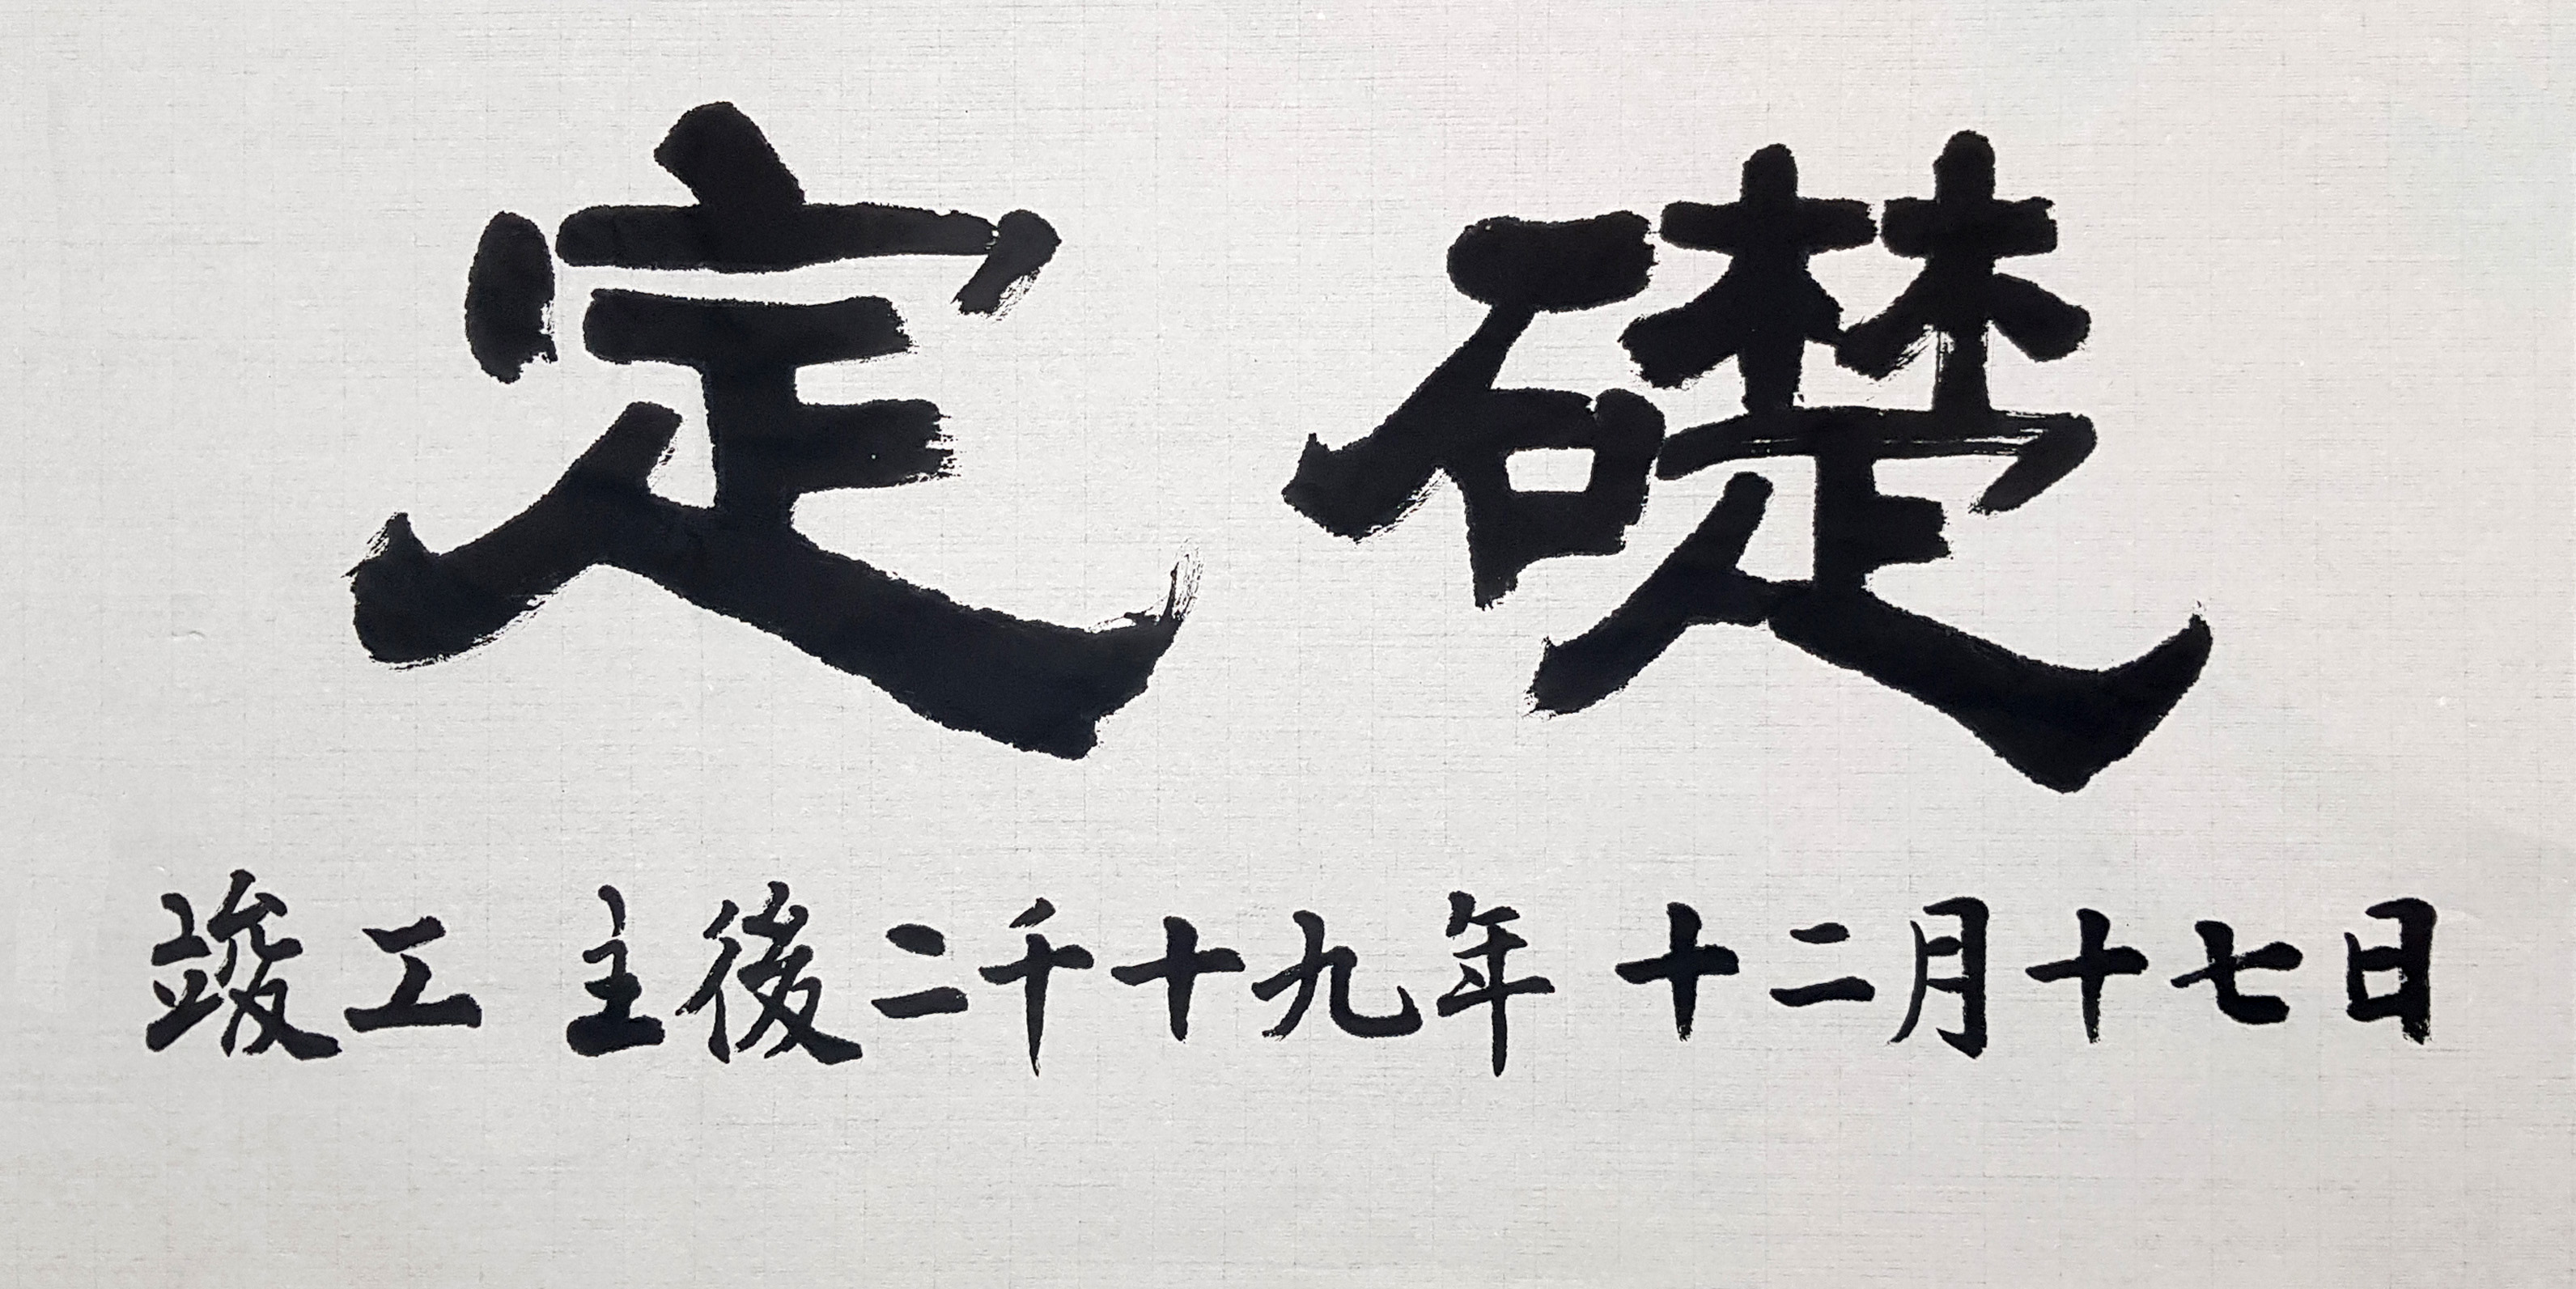 定礎
竣工 主後二千十九年 十二月十七日